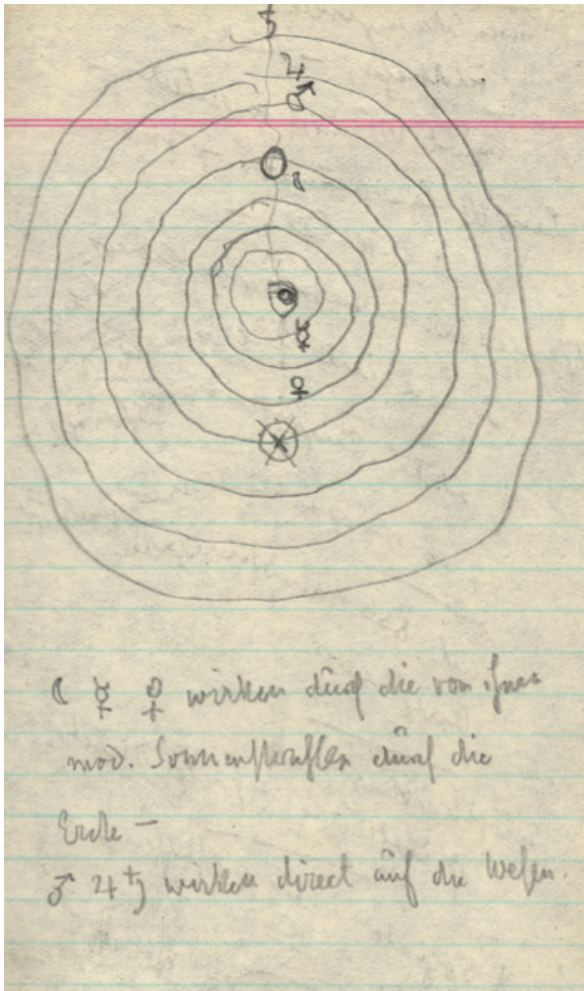 ♄
♃
♂
☾
☿
♀
☾ ☿ ♀ wirken durch die von ihnen
mod. Sonnenstrahlen durch die
Erde —
♂ ♃ ♄ wirken direct auf die Wesen.